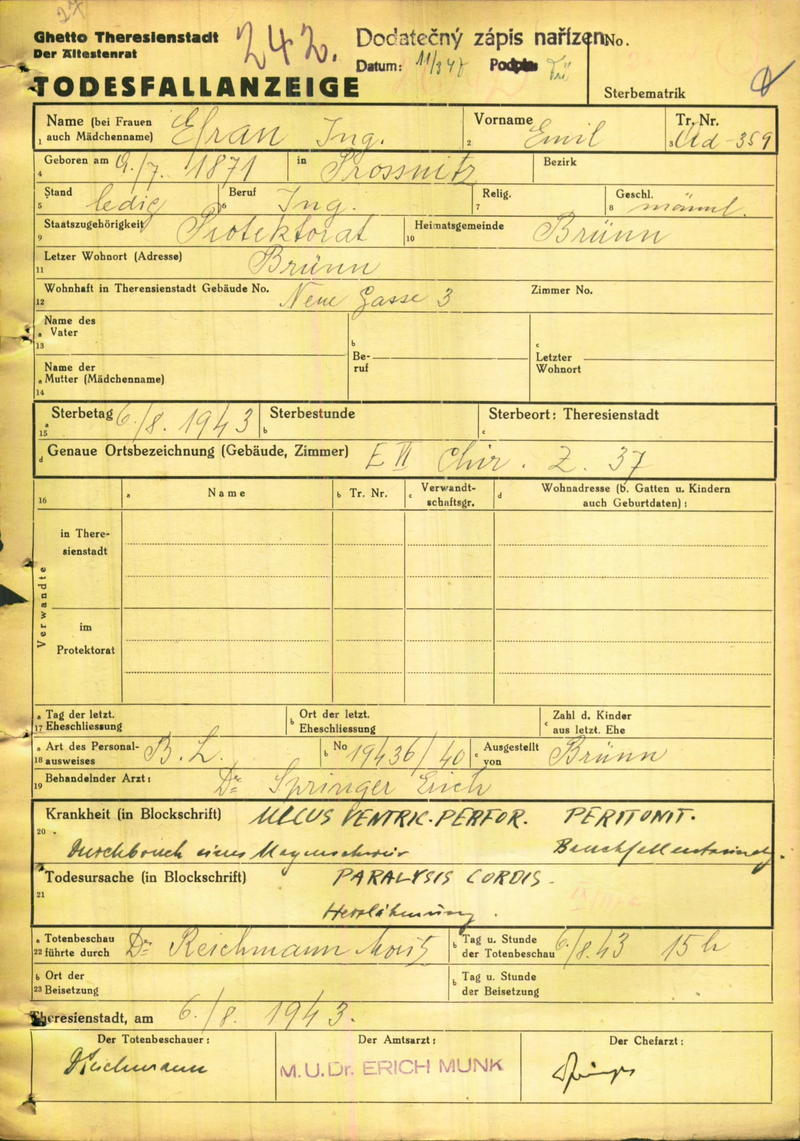 27
Ghetto Theresienstadt
Der Ältestenrat
242.
Dodatečný zápis nařízen
Datum: 11/3 47 Podpis
No.
TODESFALLANZEIGE
Sterbematrik
Name (bei Frauen auch Mädchenname) Efran Ing.
1
Vorname Emil
2
Tr. Nr. Ud-359
3
Geboren am 9./7. 1871
4
in Prossnitz
Bezirk
Stand ledig
5
Beruf Ing.
6
Relig.
7
Geschl. männl.
8
Staatszugehörigkeit Protektorat
9
Heimatsgemeinde Brünn
10
Letzer Wohnort (Adresse) Brünn
11
Wohnhaft in Therensienstadt Gebäude No. Neue Gasse 3
12
Zimmer No.
Name des
a Vater
13
b
Be-
ruf
c
Letzter
Wohnort
Name der
a Mutter (Mädchenname)
14
Sterbetag 6./8. 1943
a
15
Sterbestunde
b
Sterbeort: Theresienstadt
c
d Genaue Ortsbezeichnung (Gebäude, Zimmer) E VI Chir. Z. 37
16
a Name
b Tr. Nr.
c Verwandt-
schaftsgr.
d Wohnadresse (b. Gatten u. Kindern
auch Geburtdaten) :
Verwandte
in There-
sienstadt
im
Protektorat
a Tag der letzt.
17 Eheschliessung
b Ort der letzt.
Eheschliessung
c Zahl d. Kinder
aus letzt. Ehe
a Art des Personal-
18 ausweises B. L.
b No 19436/40
c Ausgestellt
von Brünn
Behandelnder Arzt : Dr. Springer Erich
19
Krankheit (in Blockschrift) ULCUS VENTRIC. PERFOR. PERITONIT.
20
Durchbruch eines Magenschwür Bauchfellentzündg.
Todesursache (in Blockschrift) PARALYSIS CORDIS.
21
Herzlähmung.
a Totenbeschau
22 führte durch Dr. Reichmann Moritz
b Tag u. Stunde
der Totenbeschau 6./8. 43 15 h
b Ort der
23 Beisetzung
b Tag u. Stunde
der Beisetzung
Theresienstadt, am 6./8. 1943.
Der Totenbeschauer :
Der Amtsarzt :
Der Chefarzt :
Reichmann
M. U. Dr. ERICH MUNK